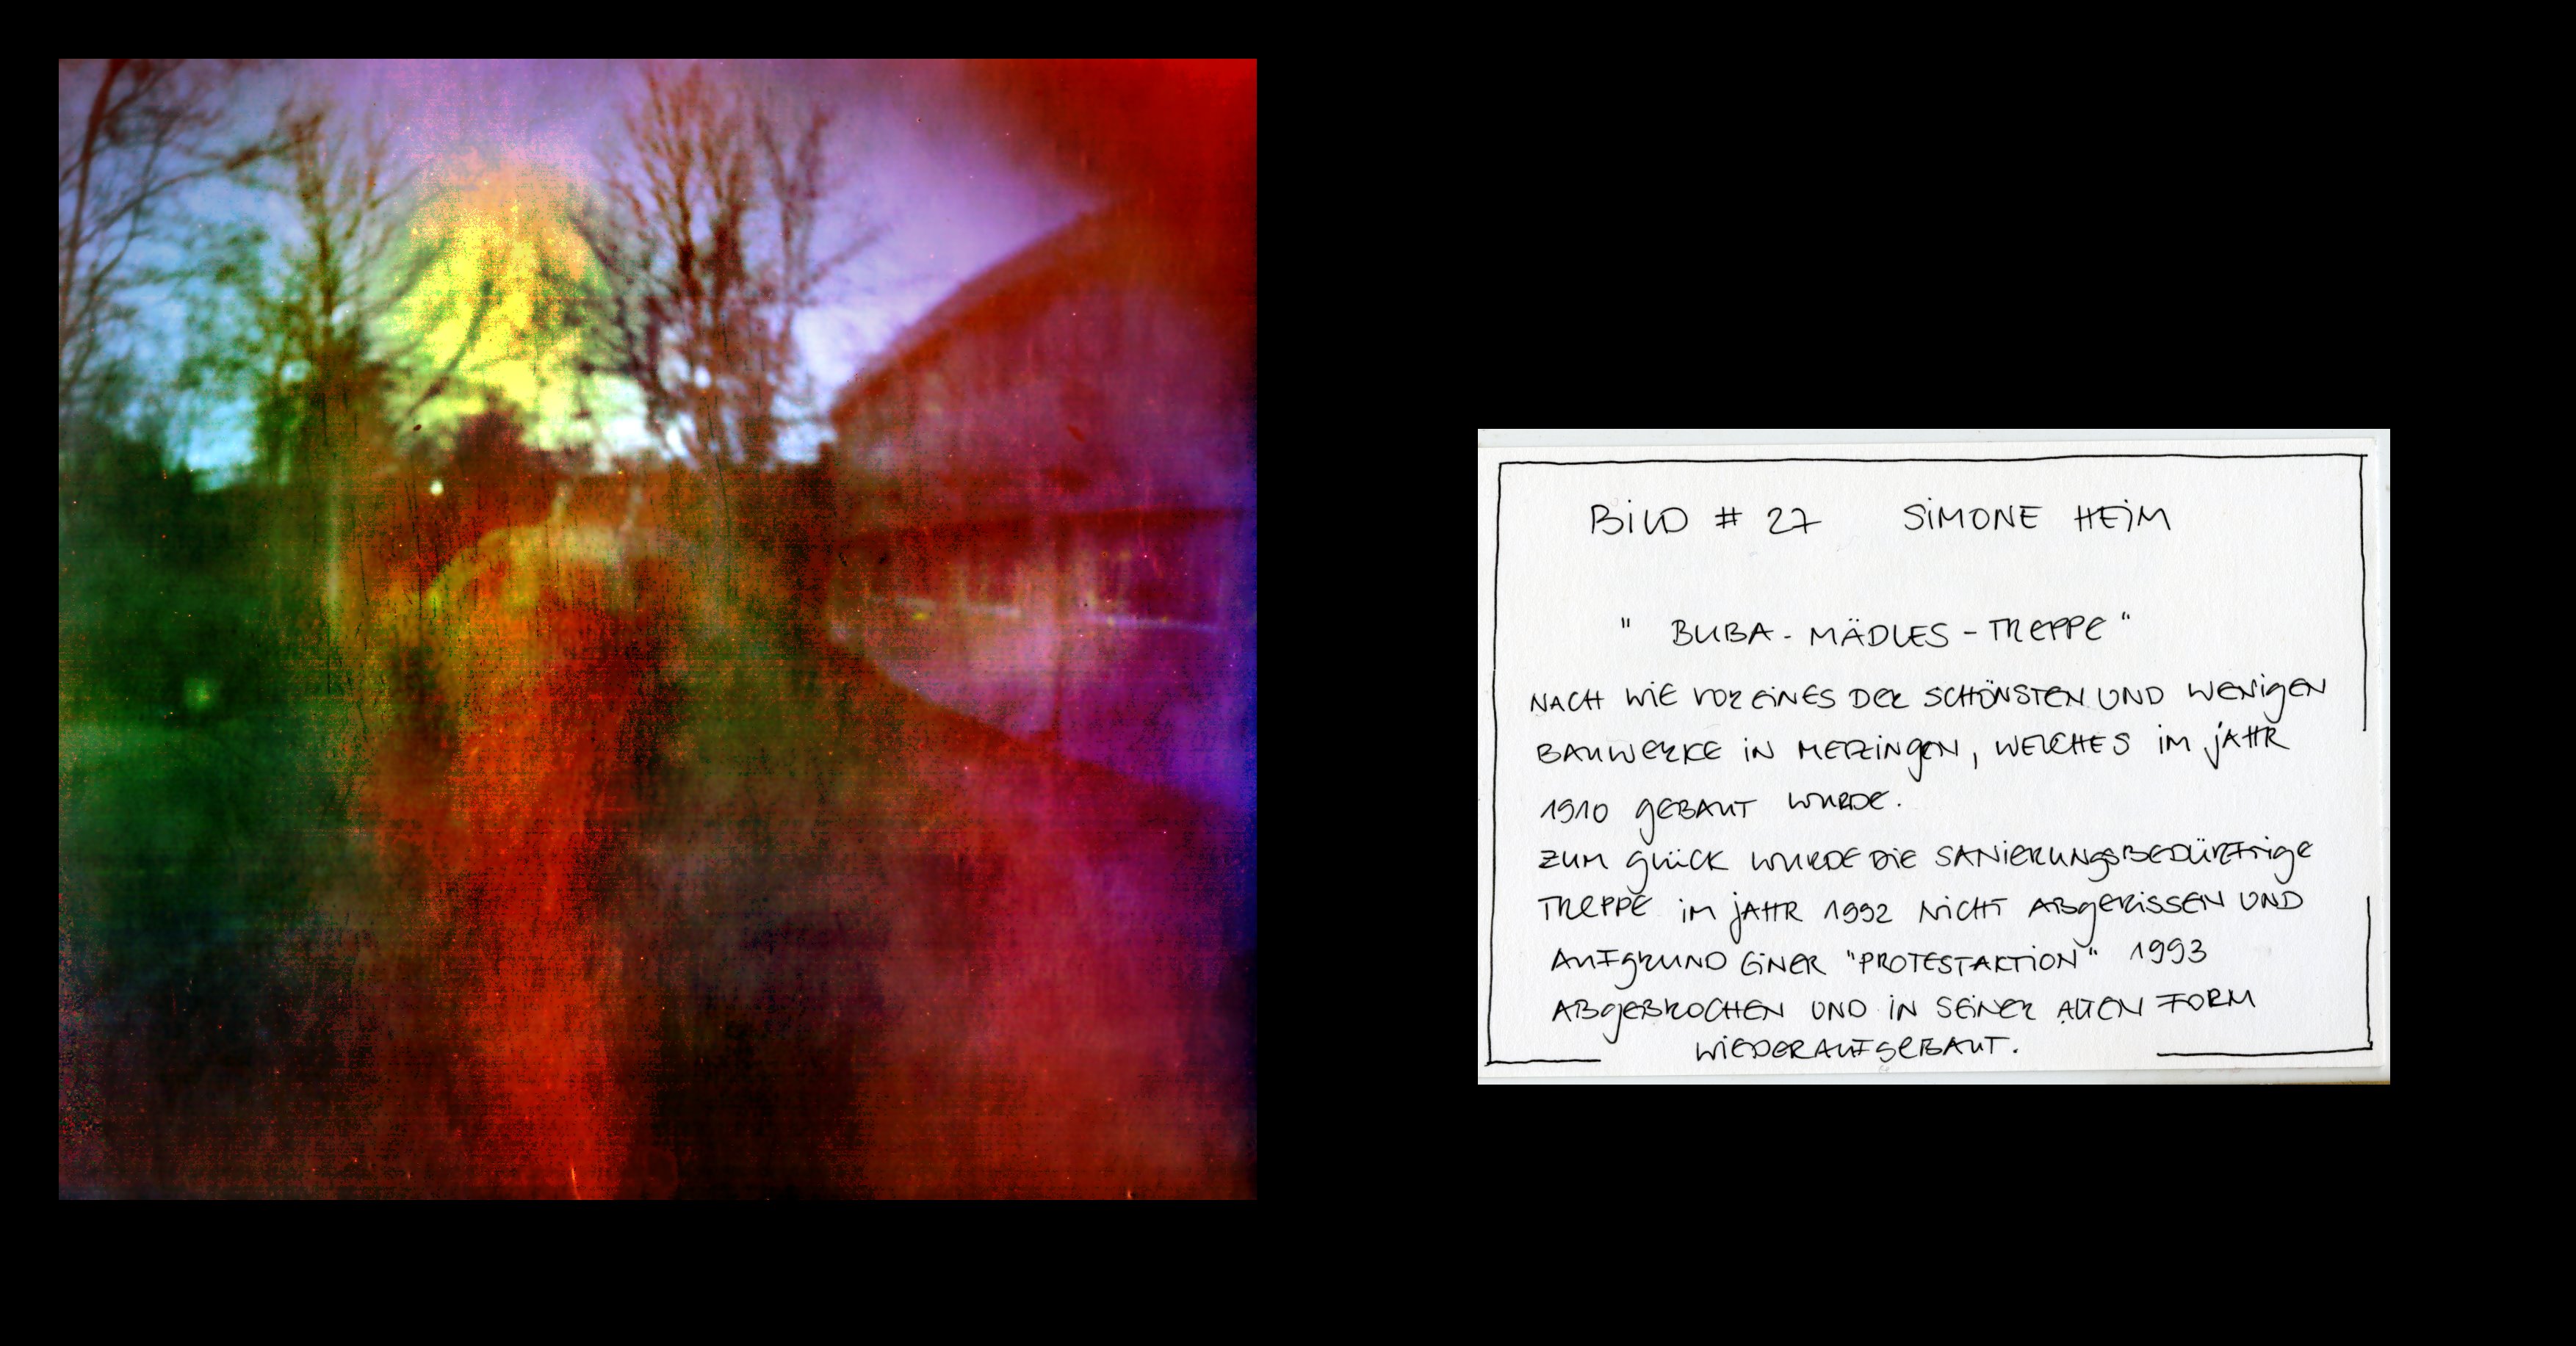 BILD # 27 SIMONE HEIM
" BUBA - MÄDLES - TREPPE "
NACH WIE VOR EINES DER SCHÖNSTEN UND WENIGEN
BAUWERKE IN METZINGEN, WELCHES IM JAHR
1910 GEBAUT WURDE.
ZUM GLÜCK WURDE DIE SANIERUNGSBEDÜRFTIGE
TREPPE IM JAHR 1992 NICHT ABGERISSEN UND
AUFGRUND EINER "PROTESTAKTION" 1993
ABGEBROCHEN UND IN SEINER ALTEN FORM
WIEDERAUFGEBAUT.